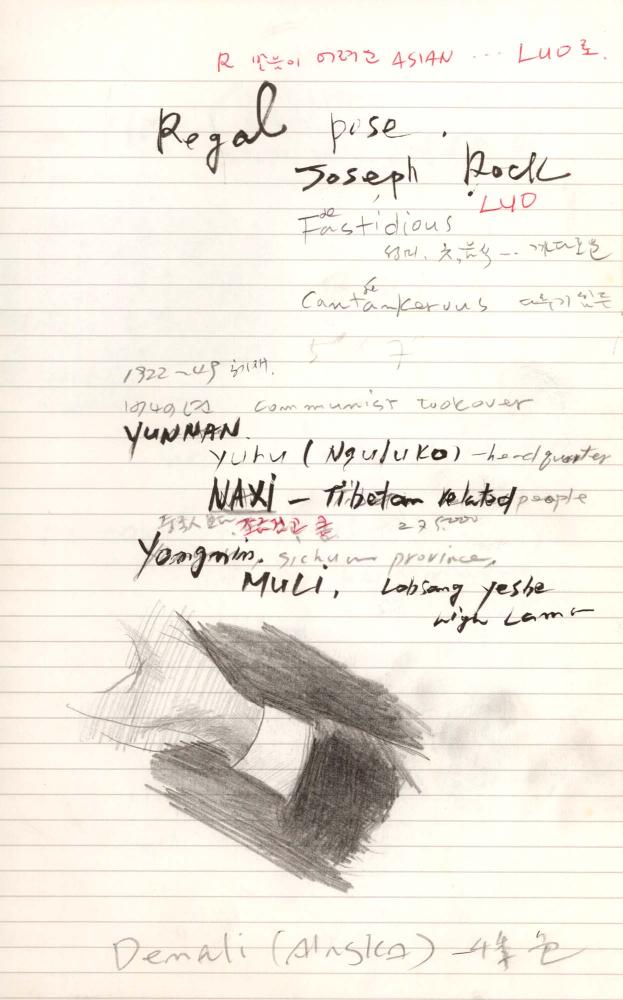 R 발음이 어려운 ASIAN ... LUO로.
Regal pose.
Joseph Rock
LUO
ae
Fastidious
옷, 음식 ... 까다로운
ae
Cantankerous
5 7
1922~49
1949 communist tookover
YUNNAN.
yuhu (Nguluko) - headquarter
NAXI - Tibetan related people
중국人 보다 275,000
Yongnin, sichuan province,
MULI, Lobsang yeshe
high Lama
Denali (Alaska) -